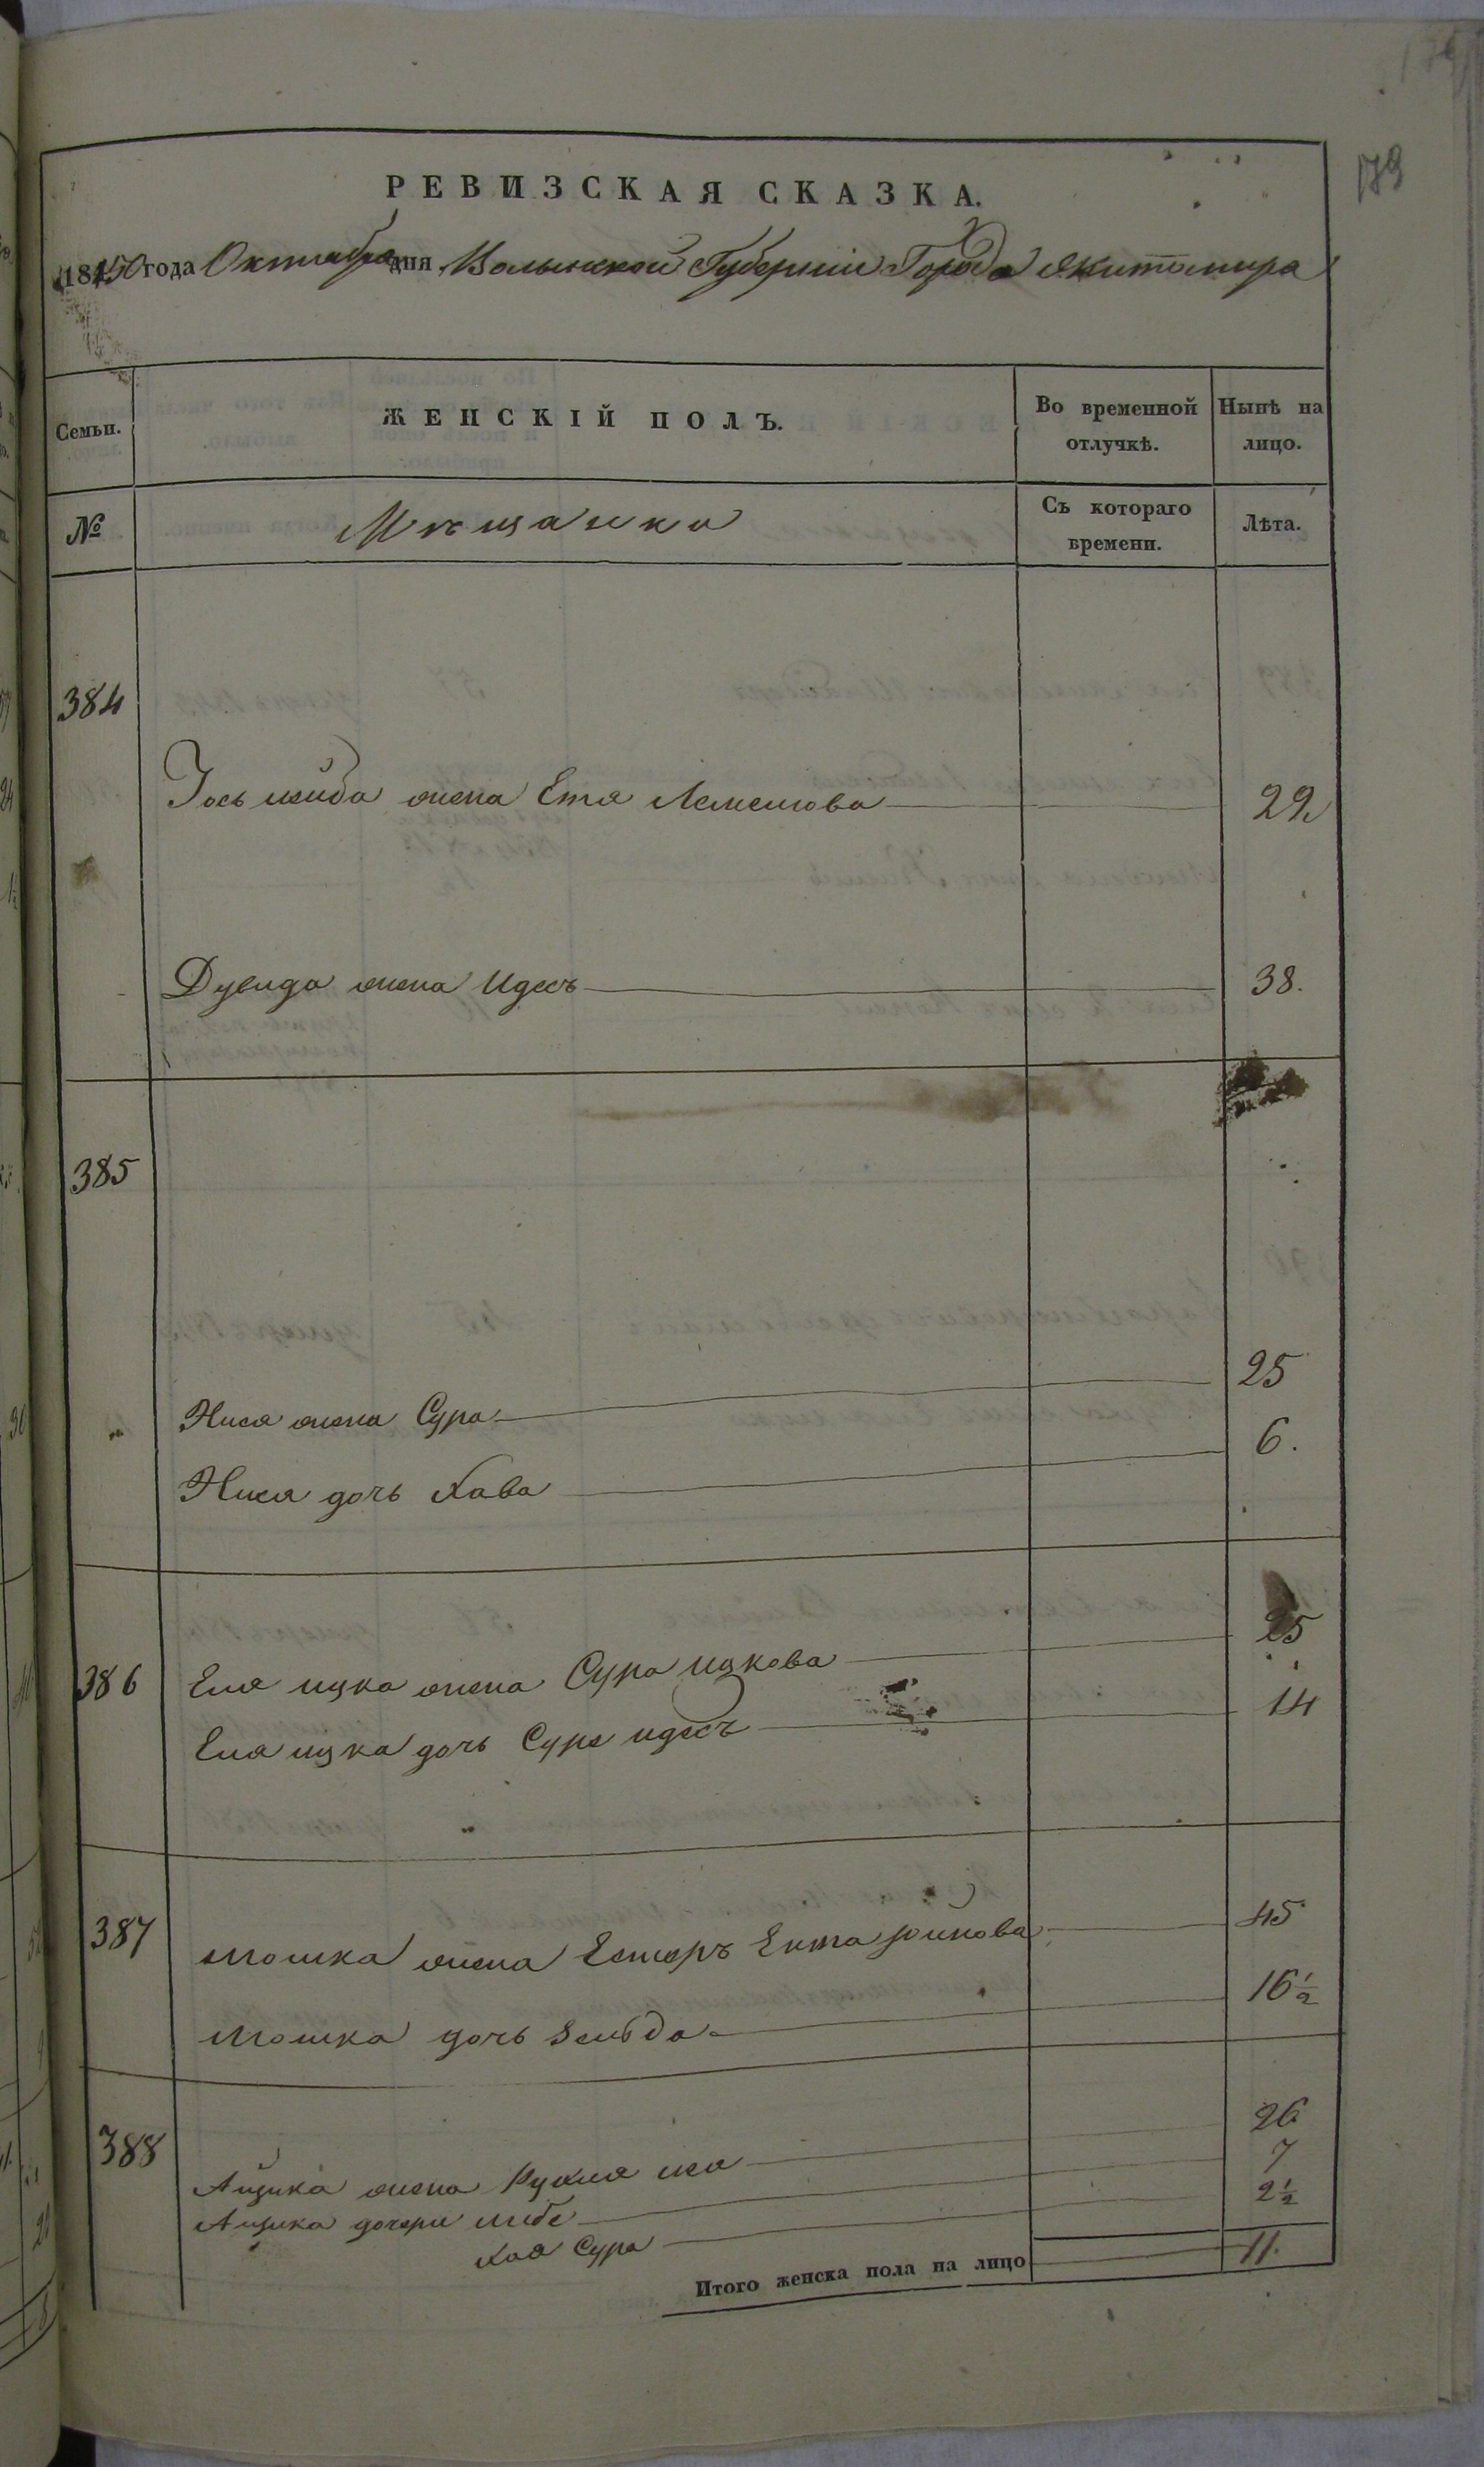 179
РЕВИЗСКАЯ СКАЗКА.
1850 года Октября дня Волынской Губернии Города Житомира
Семьи. ЖЕНСКІЙ ПОЛЪ. Во временной отлучкѣ. Нынѣ на лицо.
№ Мѣщанки Съ котораго времени. Лѣта.
384
Іось лейба жена Етя 29
Дувида жена Идесъ 38.
385
Нися жена Сура 25
Нися дочь Хава 6.
386 Еля ицка жена Сура ицкова 25
Еля ицка дочь Сура идесъ 14
387 мошка жена Естеръ Ента 45
мошка дочь Зельда 16½
388
Айзика жена Рухля лея 26
Айзика дочери либе 7
хая Сура 2½
Итого женска пола на лицо 11.